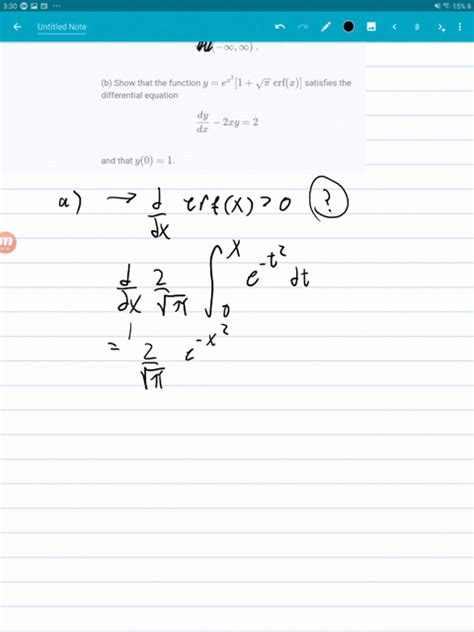 3:30
15% 8
Untitled Note
8
(−∞, ∞) .
(b) Show that the function y = e^{x^2}[1 + √π erf(x)] satisfies the
differential equation
dy/dx − 2xy = 2
and that y(0) = 1.
a) → d/dx erf(x) > 0 (?)
d/dx 2/√π ∫_0^x e^{-t^2} dt
= 2/√π e^{-x^2}